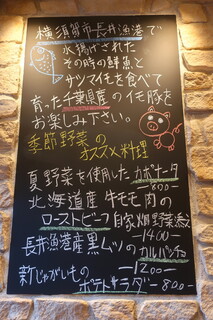 横須賀市長井漁港で
水揚げされた
その時の鮮魚と
サツマイモを食べて
育った千葉県産のイモ豚を
お楽しみ下さい。
季節野菜の
オススメ料理
夏野菜を使用したカポナータ
800-
北海道産牛モモ肉の
ローストビーフ 自家畑野菜添え
1400-
長井漁港産黒ムツのカルパッチョ
1200-
新じゃがいもの
ポテトサラダー800-